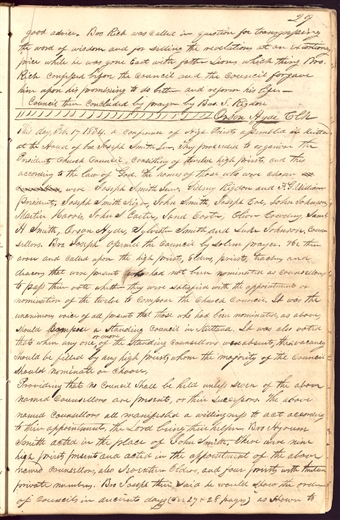 29
good advice. Bro Rich was called in question for transgressing
the word of wisdom and for selling the revelations at an extortionary
price while he was gone East with father Lions which thing Bro.
Rich confessed before the Council and the Council forgave
him upon his promising to do better and reform his life—
Council then concluded by prayer by Bro S. Rigdon
Orson Hyde Clk
This day Feb. 17 1834. a conference of High Priests assembled in Kirtland
at the House of Bro Joseph Smith Jun. They proceeded to organize the
President Church Council, consisting of twelve high priests, and this
according to the law of God. the names of those who were chosen
were Joseph Smith Jun. Sidney Rigdon and F. G. Williams
Presidents, Joseph Smith Sen. John Smith Joseph Coe, John Johnson
Martin Harris John S Carter, Jared Carter, Oliver Cowdery Saml
H Smith, Orson Hyde, Sylvester Smith and Luke Johnson, Coun
sellors. Bro Joseph opened the Council by solemn prayer. He then
arose and called upon the high priests, Elders, priests, teachers and
deacons that were present who had not been nominated as counsellors
to pass their vote whether they were satisfied with the appointment or
nomination of the twelve to compose the Church Council. It was the
unanimous voice of all present that those who had been nominated, as above,
should compose a standing Council in Kirtland. It was also voted
that when any one or more of the Standing Counsellors were absent, the vacancy
should be filled by any high priests whom the majority of the Council
should nominate or choose.
Providing that no Council shall be held unless seven of the above
named Counsellors are present, or their successors. the above
named Counsellors all manifested a willingness to act according
to their appointments, the Lord being their helper. Bro Hyrum
Smith acted in the place of John Smith. There were nine
high priests present and acted in the appointment of the above
named counsellors, also seventeen Elders, and four priests with
private members. Bro Joseph then said he would show the order
of Councils in ancient days (see 27 &amp; 28 pages) as shown to